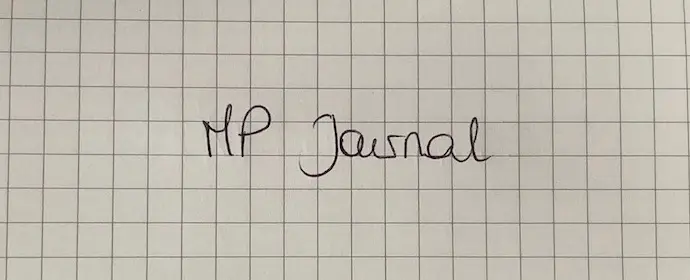 MP Journal